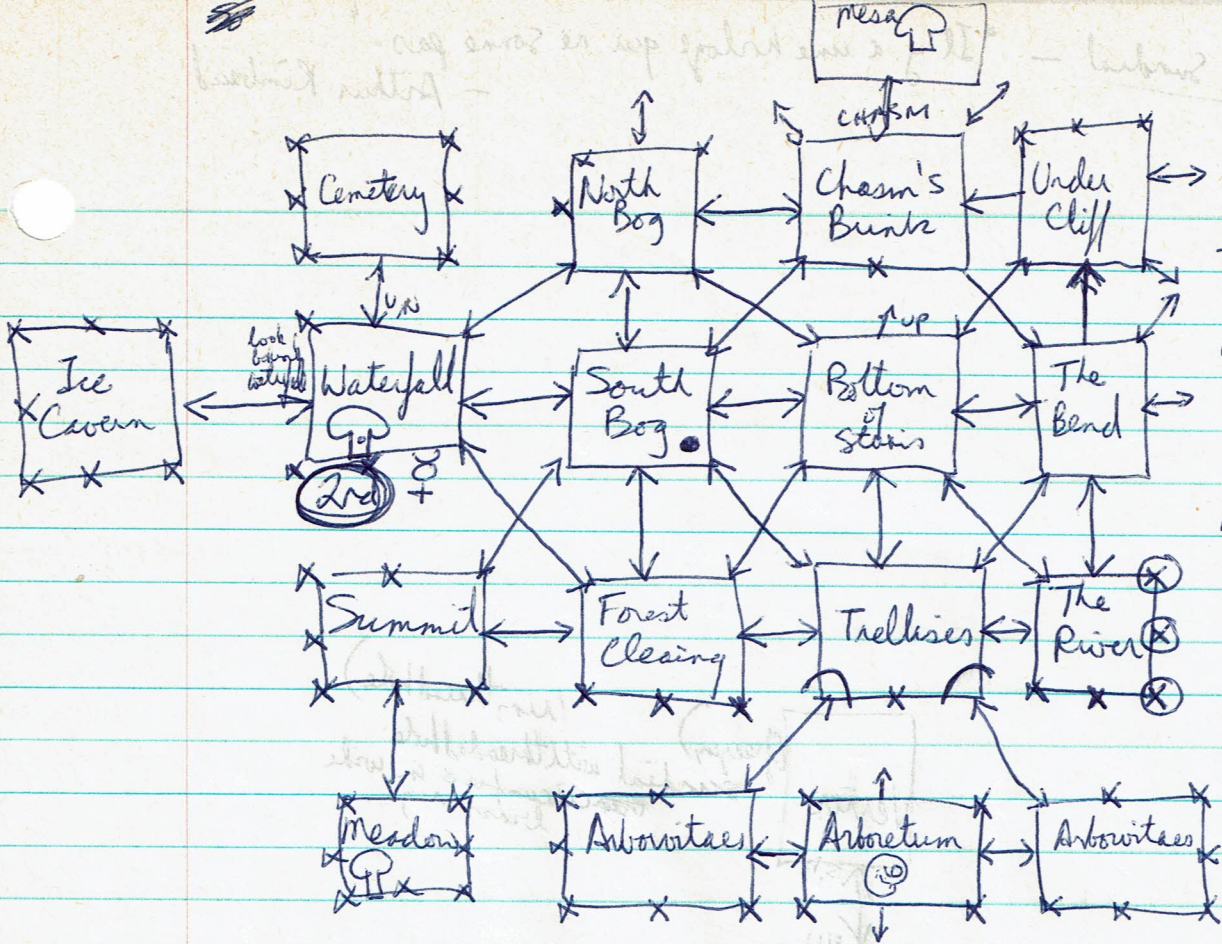 mesa
CHASM
Cemetery
North
Bog
Chasm's
Brink
Under
Cliff
up
look
Ice
Cavern
Waterfall
South
Bog
Bottom
of
Stairs
The
Bend
2nd
Summit
Forest
Clearing
Trellises
The
River
Meadow
Arborvitaes
Arboretum
Arborvitaes